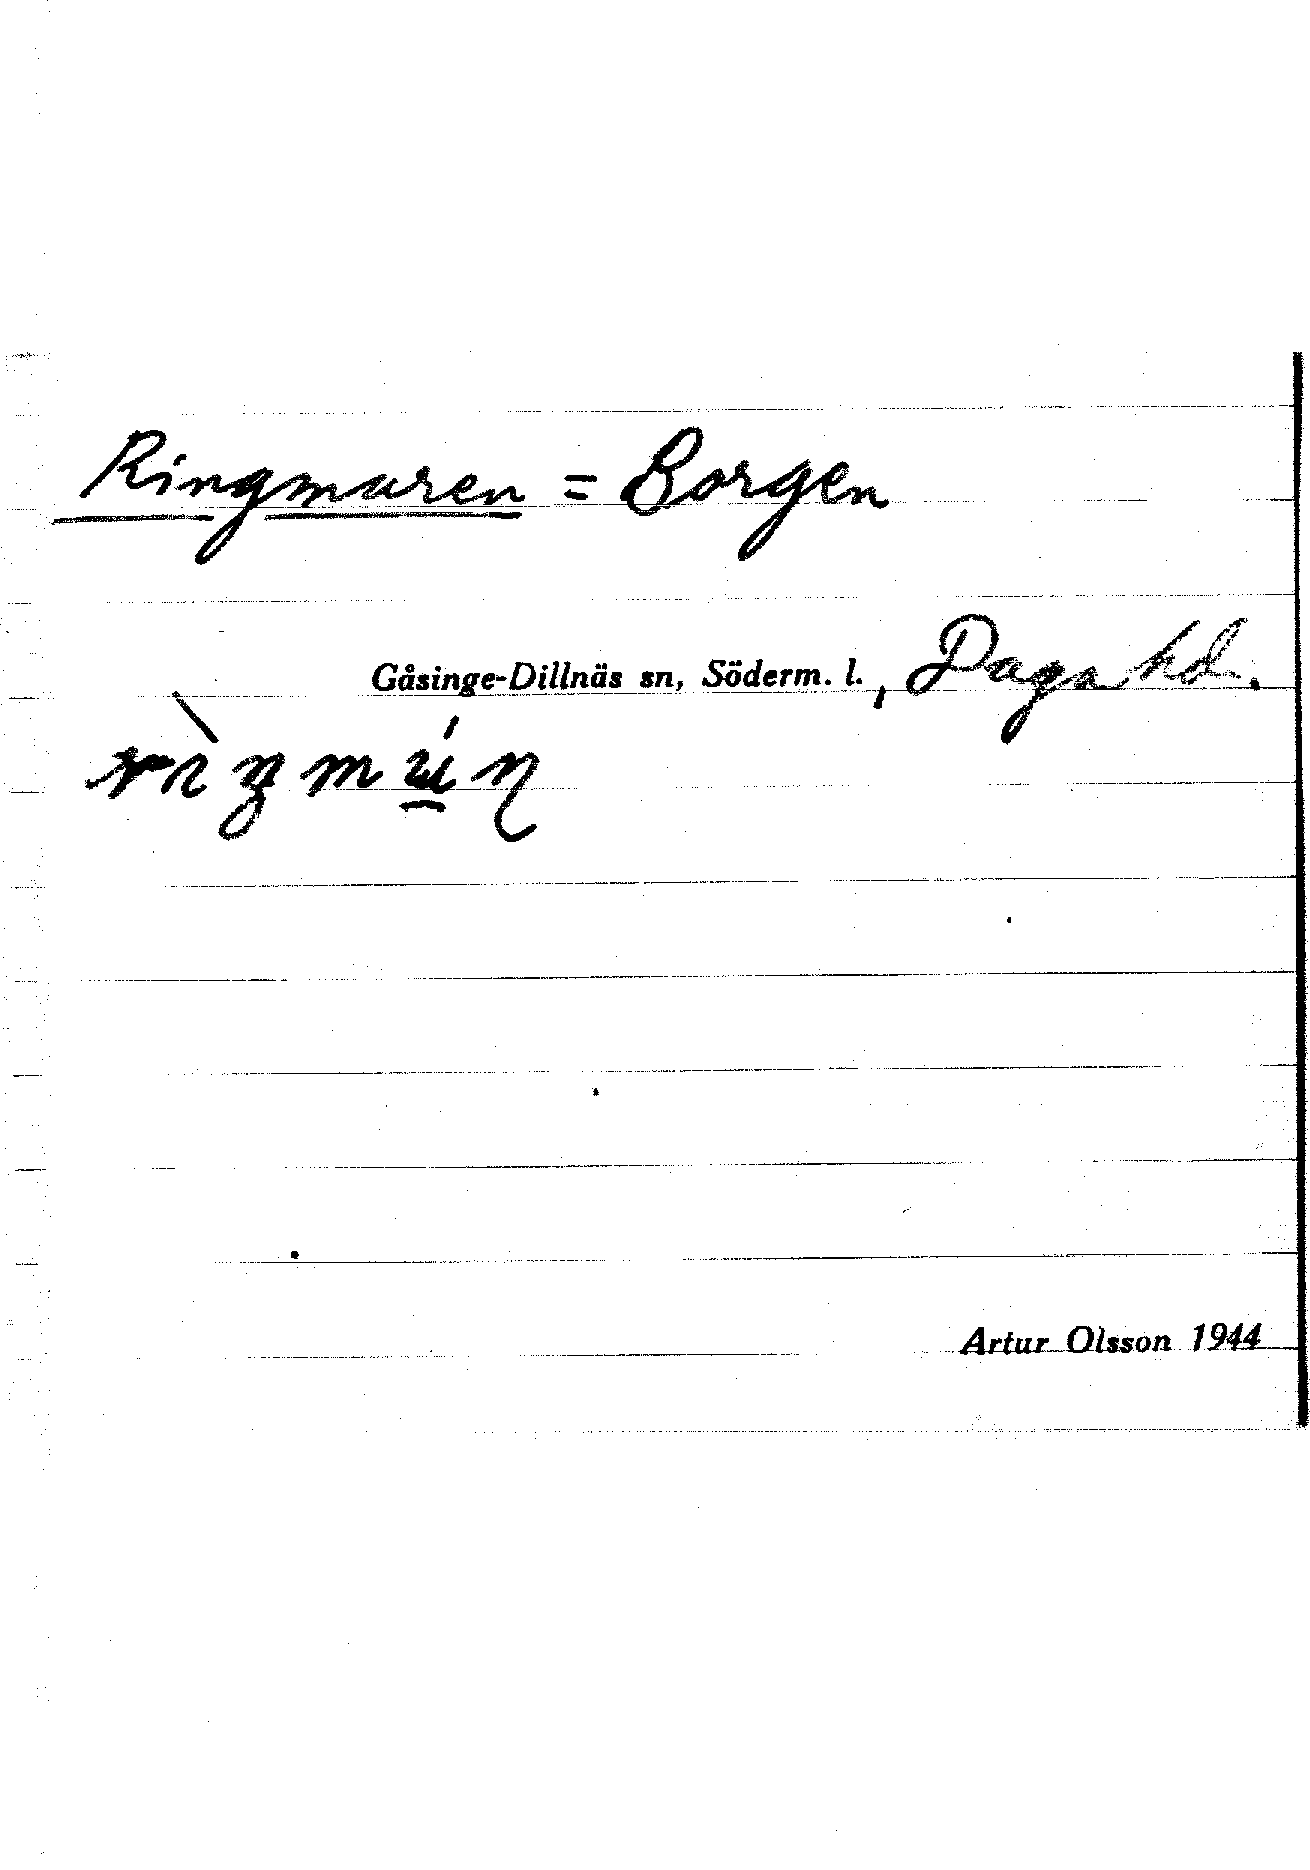 Ringmuren = Borgen
Gåsinge-Dillnäs sn, Söderm. l., Daga hd.
Artur Olsson 1944